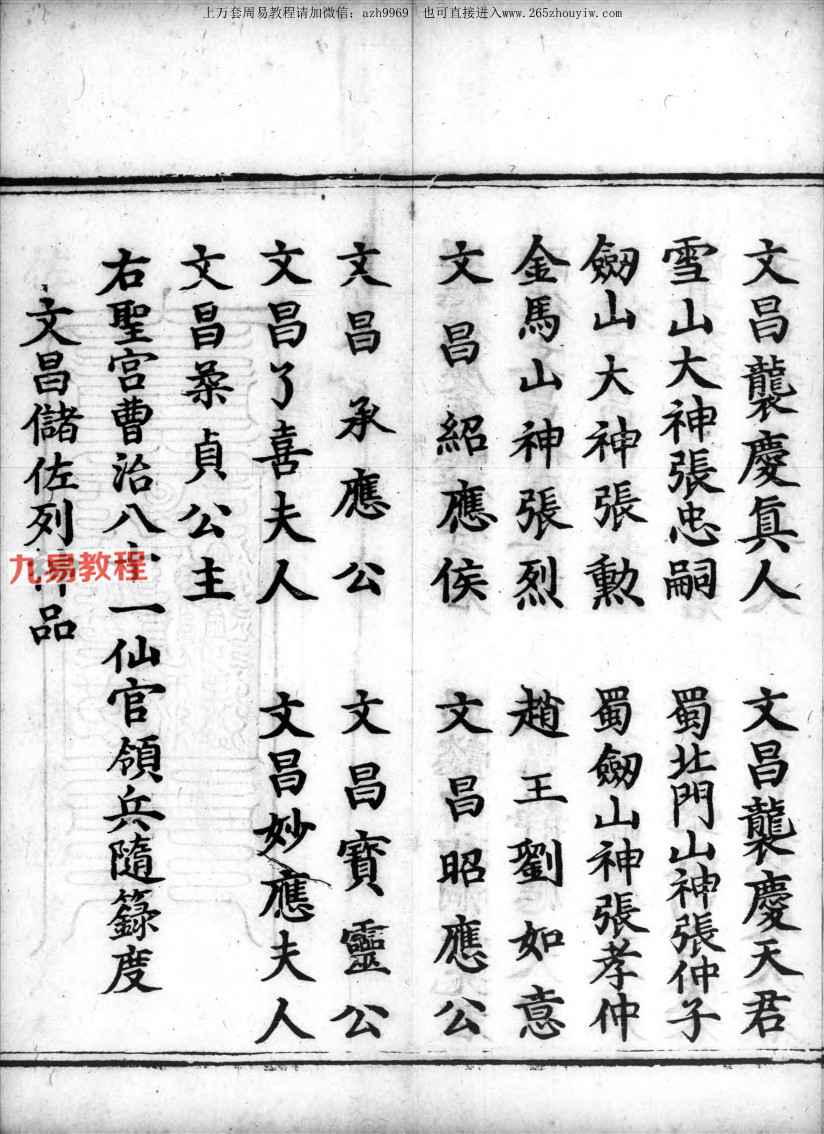 上万套周易教程请加微信：azh9969 也可直接进入www.265zhouyiw.com
文昌襲慶真人 文昌襲慶天君
雪山大神張忠嗣 蜀北門山神張仲子
劒山大神張勳 蜀劒山神張孝仲
金馬山神張烈 趙王劉如意
文昌紹應侯 文昌昭應公
文昌承應公 文昌寶靈公
文昌了喜夫人 文昌妙應夫人
文昌柔貞公主
右聖宫曹治八十一仙官領兵隨籙度
文昌儲佐列品
九易教程